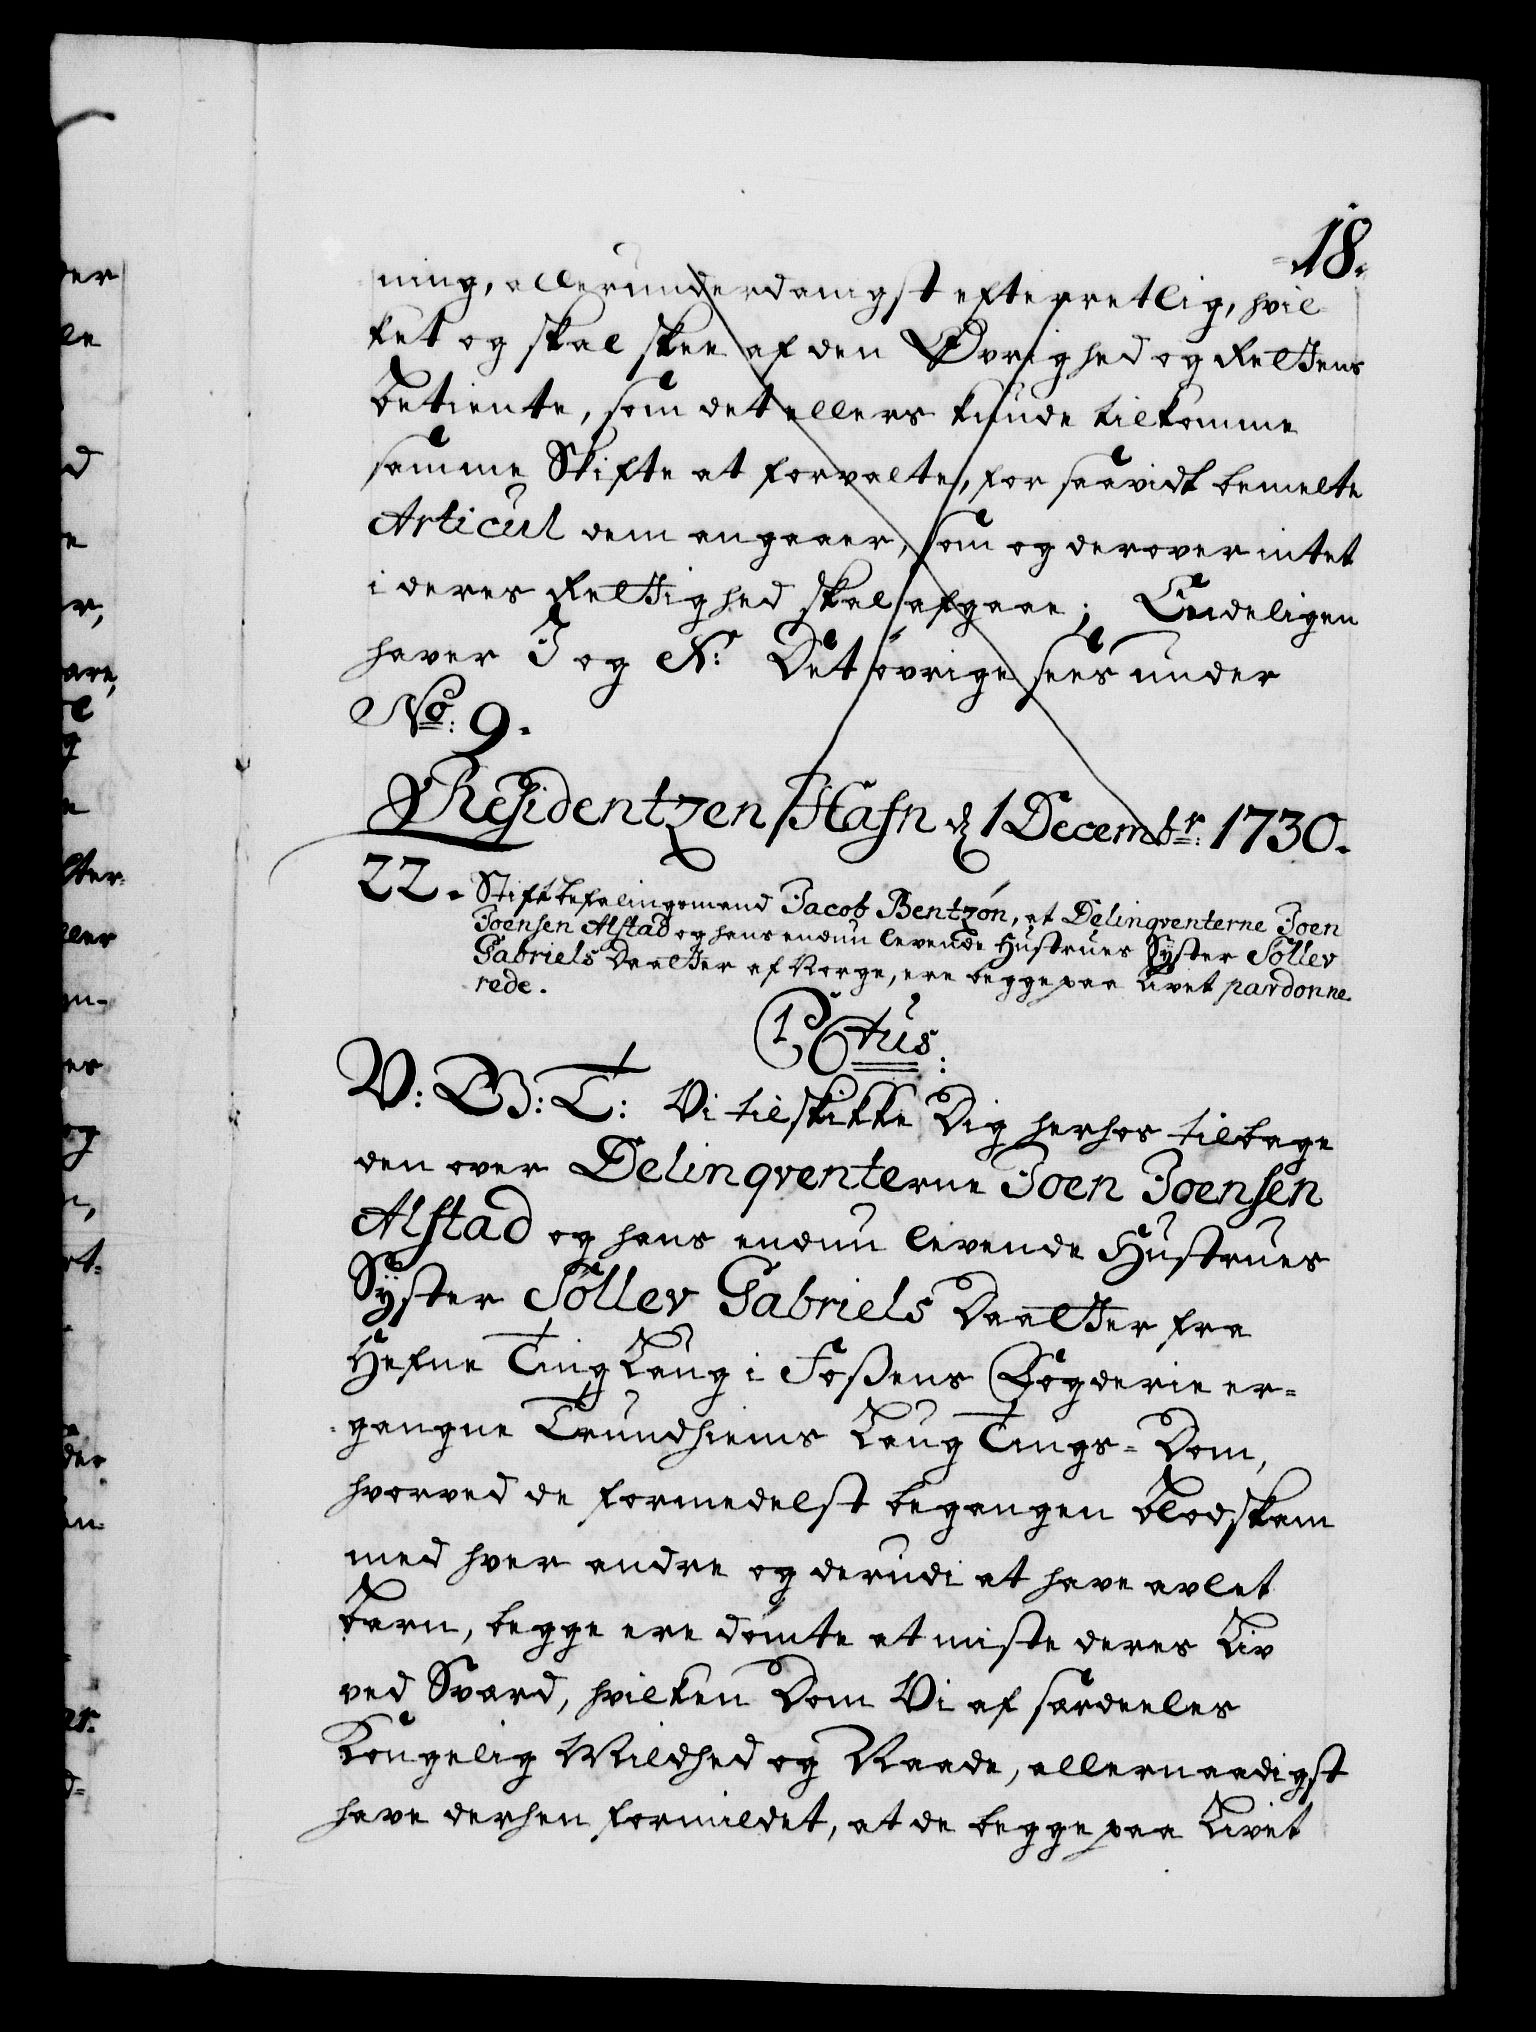 18.
ning, allerunderdanigst efterretlig, hvil
ket og skal skee af den Øvrighed og Rettens
Betiente, som det ellers kunde tilkomme
samme Skifte at forvalte, for saavidt bemelte
Articul dem angaaer, som og derover intet
i deres Rettighed skal afgaae; Endeligen
haver I og N: Det øvrige sees under
No: 9.
Residentzen Hafn d 1 Decembr: 1730.
22. Stiftbefalingsmand Jacob Bentzón, at Delinqventerne Joen
Joensen Alstad og hans endnu levende Hustrues Syster Söllev
Gabriels Daatter af Norge, ere begge paa Livet pardonne
rede.
V: G: T: Vi tilskikke Dig herhos tilbage
den over Delinqventerne Joen Joensen
Alstad og hans endnu levende Hustrues
Syster Söllev Gabriels Daatter fra
Hefne Ting Laug i Foßens Fogderie er=
gangne Trundhiems Laug Tings= Dom,
hvorved de formedelst begangen Blodskam
med hver andre og derudi at have avlet
Barn, begge ere dömte at miste deres Liv
ved Sværd, hvilken Dom Vi af særdeeles
Kongelig Mildhed og Naade, allernaadigst
have derhen formildet, at de begge paa Livet